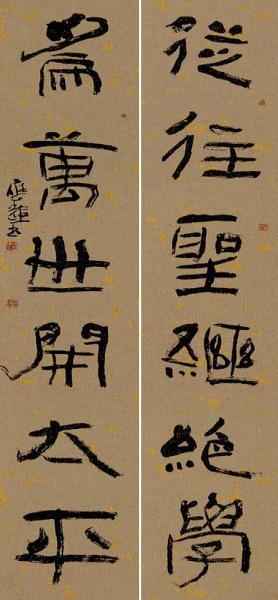 從往聖繼絕學
為萬世開太平